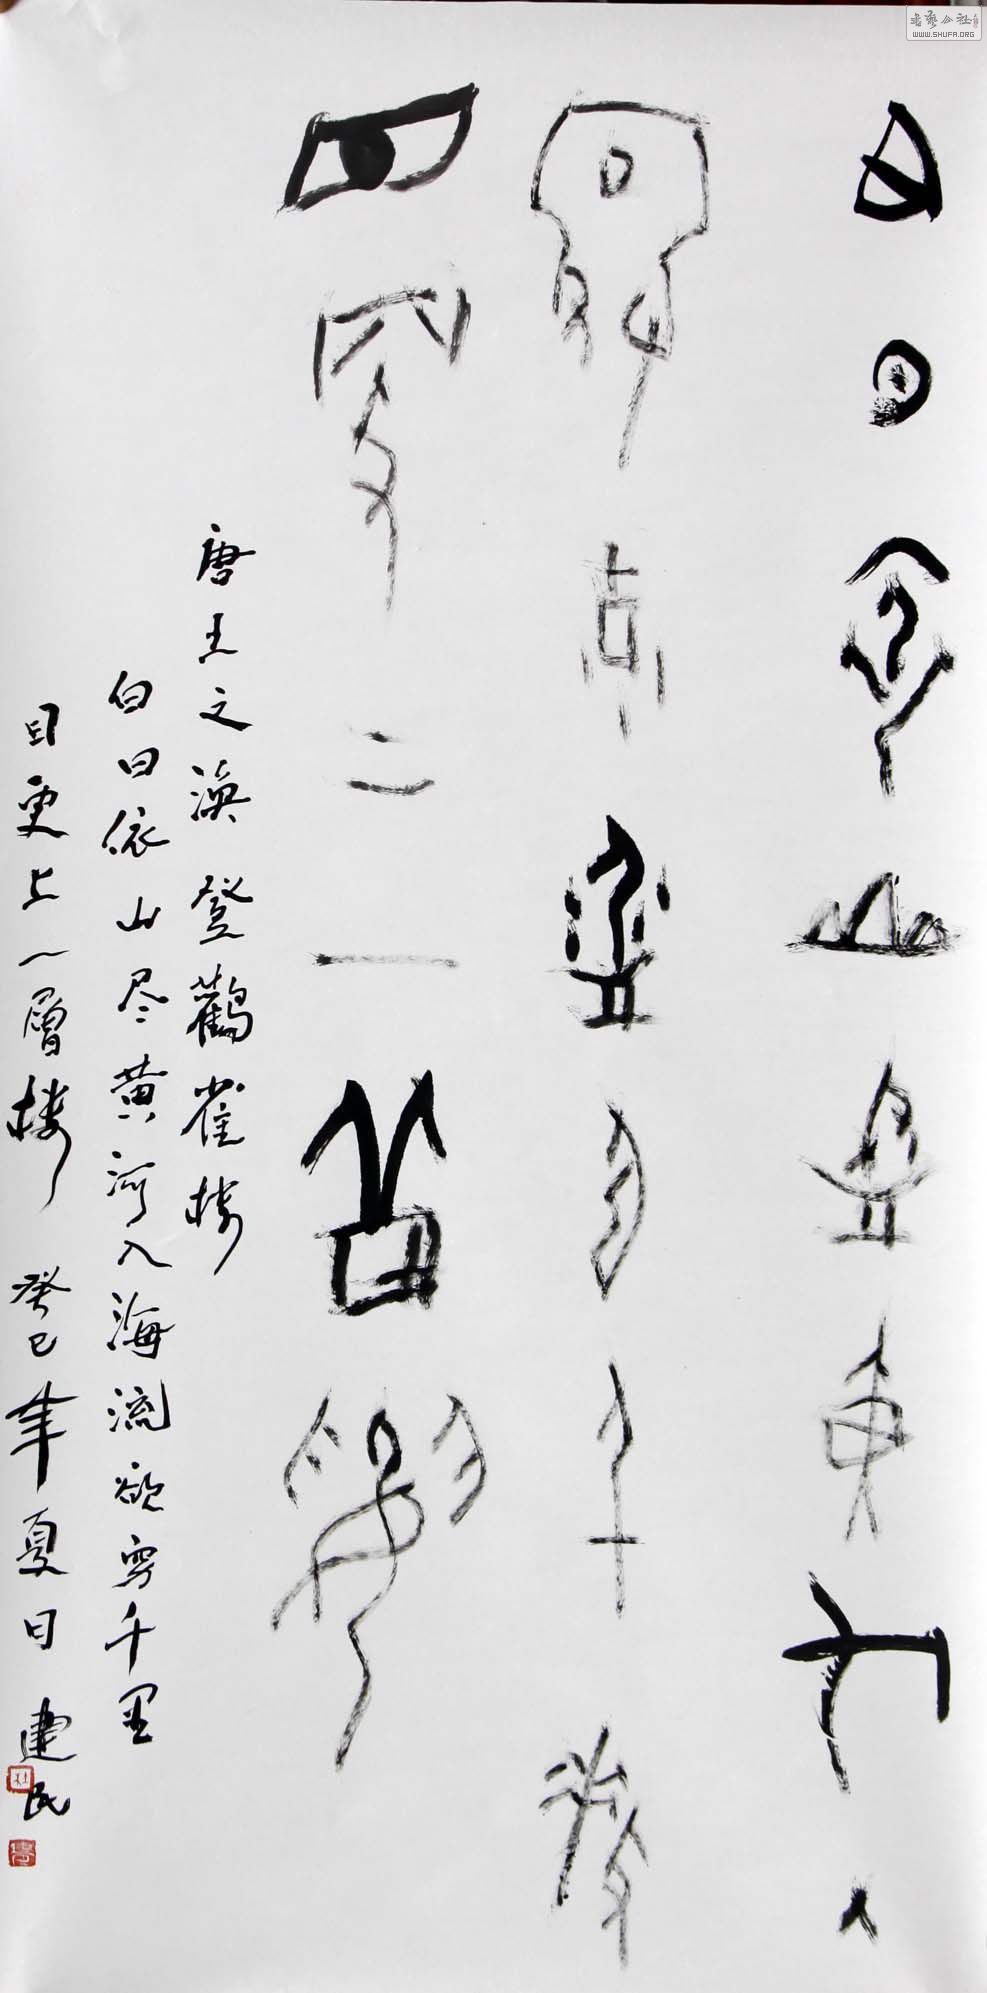 書藝公社
WWW.SHUFA.ORG
白日依山盡黃河入
海流欲窮千里
目更上一層樓
唐王之渙登鸛雀楼
白日依山尽黄河入海流欲穷千里
目更上一層楼 癸巳年夏日 建民
杜